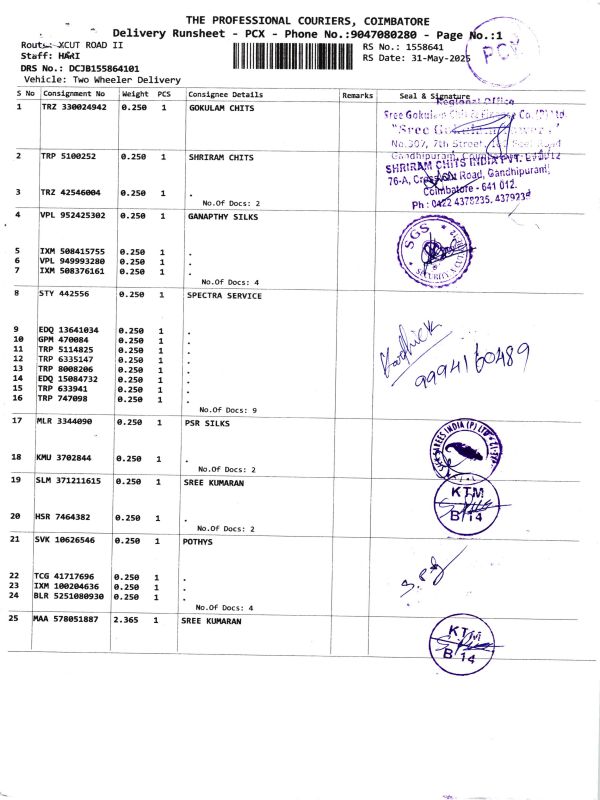 THE PROFESSIONAL COURIERS, COIMBATORE
Delivery Runsheet - PCX - Phone No.:9047080280 - Page No.:1
Route: XCUT ROAD II
RS No.: 1558641
PCX
Staff: HARI
RS Date: 31-May-2025
DRS No.: DCJB155864101
Vehicle: Two Wheeler Delivery
S No Consignment No Weight PCS Consignee Details Remarks Seal & Signature
1 TRZ 330024942 0.250 1 GOKULAM CHITS
Regional Office
Sree Gokulam Chit & Finance Co. (P) Ltd.
No.307, 7th Street,
Gandhipuram,
2 TRP 5100252 0.250 1 SHRIRAM CHITS
SHRIRAM CHITS INDIA PVT. LTD
76-A, Cross Cut Road, Gandhipuram,
Coimbatore - 641 012.
Ph : 0422 4378235,
3 TRZ 42546004 0.250 1 .
No.Of Docs: 2
4 VPL 952425302 0.250 1 GANAPTHY SILKS
SGS
SECURITY
5 IXM 508415755 0.250 1 .
6 VPL 949993280 0.250 1 .
7 IXM 508376161 0.250 1 .
No.Of Docs: 4
8 STY 442556 0.250 1 SPECTRA SERVICE
9 EDQ 13641034 0.250 1 .
10 GPM 470084 0.250 1 .
11 TRP 5114825 0.250 1 .
12 TRP 6335147 0.250 1 .
13 TRP 8008206 0.250 1 .
14 EDQ 15084732 0.250 1 .
15 TRP 633941 0.250 1 .
16 TRP 747098 0.250 1 .
9994160489
No.Of Docs: 9
17 MLR 3344090 0.250 1 PSR SILKS
SAREES INDIA (P) LTD
18 KMU 3702844 0.250 1 .
No.Of Docs: 2
19 SLM 371211615 0.250 1 SREE KUMARAN
KTM
B 14
20 HSR 7464382 0.250 1 .
No.Of Docs: 2
21 SVK 10626546 0.250 1 POTHYS
22 TCG 41717696 0.250 1 .
23 IXM 100204636 0.250 1 .
24 BLR 5251080930 0.250 1 .
No.Of Docs: 4
25 MAA 578051887 2.365 1 SREE KUMARAN
KTM
B 14